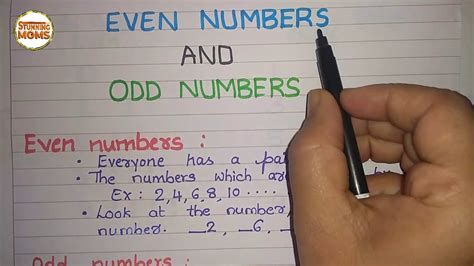 STUNNING
MOMS
EVEN NUMBERS
AND
ODD NUMBERS
Even numbers :
• Everyone has a
• The numbers which
Ex : 2, 4, 6, 8, 10 ....
• Look at the number,
number. _2, _6, _
Odd numbers :